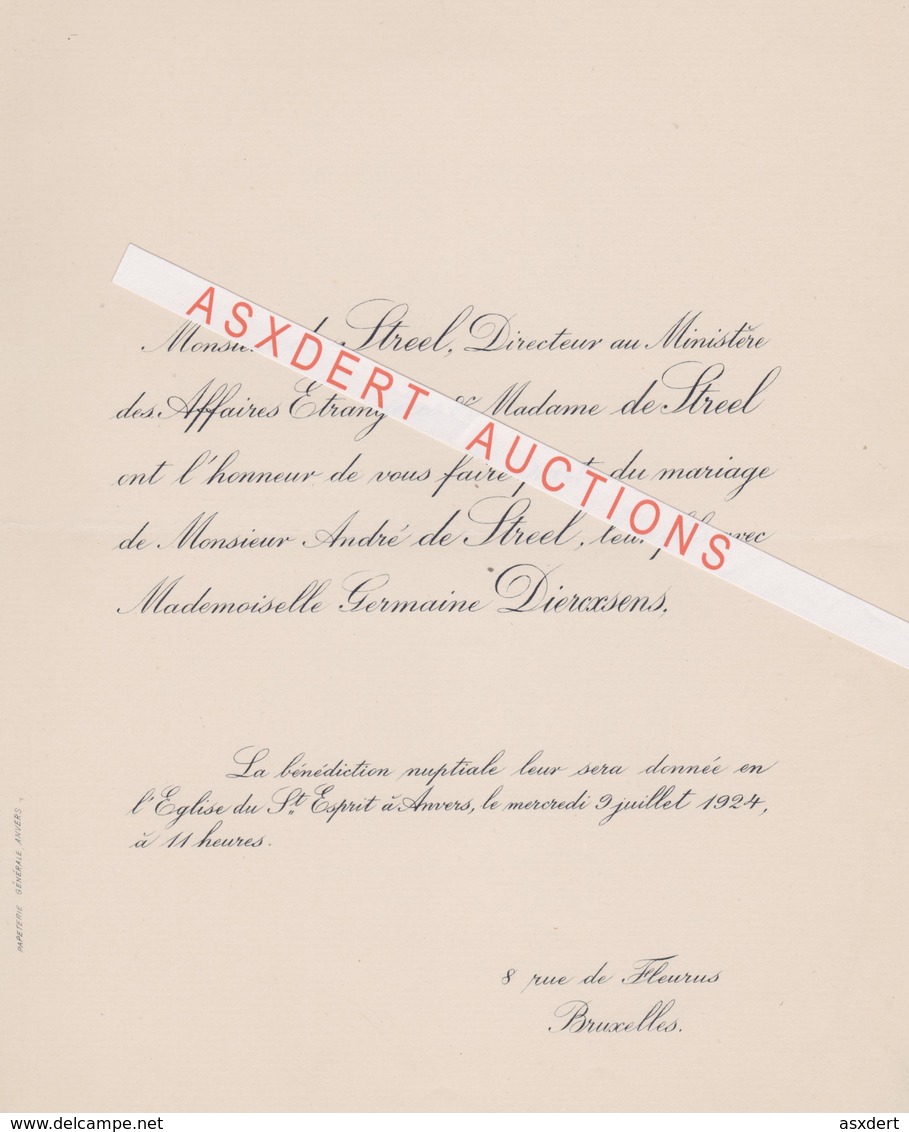 Monsieur de Streel, Directeur au Ministère
des Affaires Etrang & Madame de Streel
ont l'honneur de vous faire part du mariage
de Monsieur André de Streel, leur fils avec
Mademoiselle Germaine Diercxsens.
ASXDERT AUCTIONS
La bénédiction nuptiale leur sera donnée en
l'Eglise du St Esprit à Anvers, le mercredi 9 juillet 1924,
à 11 heures.
PAPETERIE GÉNÉRALE, ANVERS
8 rue de Fleurus
Bruxelles.
delcampe.net
asxdert